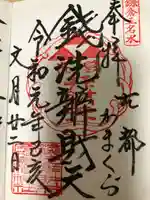 鎌倉五名水
奉拝
古都
かまくら
銭洗辨財天
令和元年己亥
文月廿二